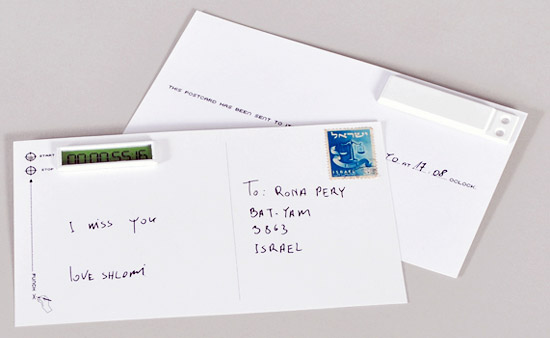 THIS POSTCARD HAS BEEN SENT TO
TO AT 17.08 OCLOCK.
START
STOP
00:00:55:16
PUNCH
ישראל
ISRAEL
I miss you
love SHLOMI
To: RONA PERY
BAT-YAM
3863
ISRAEL